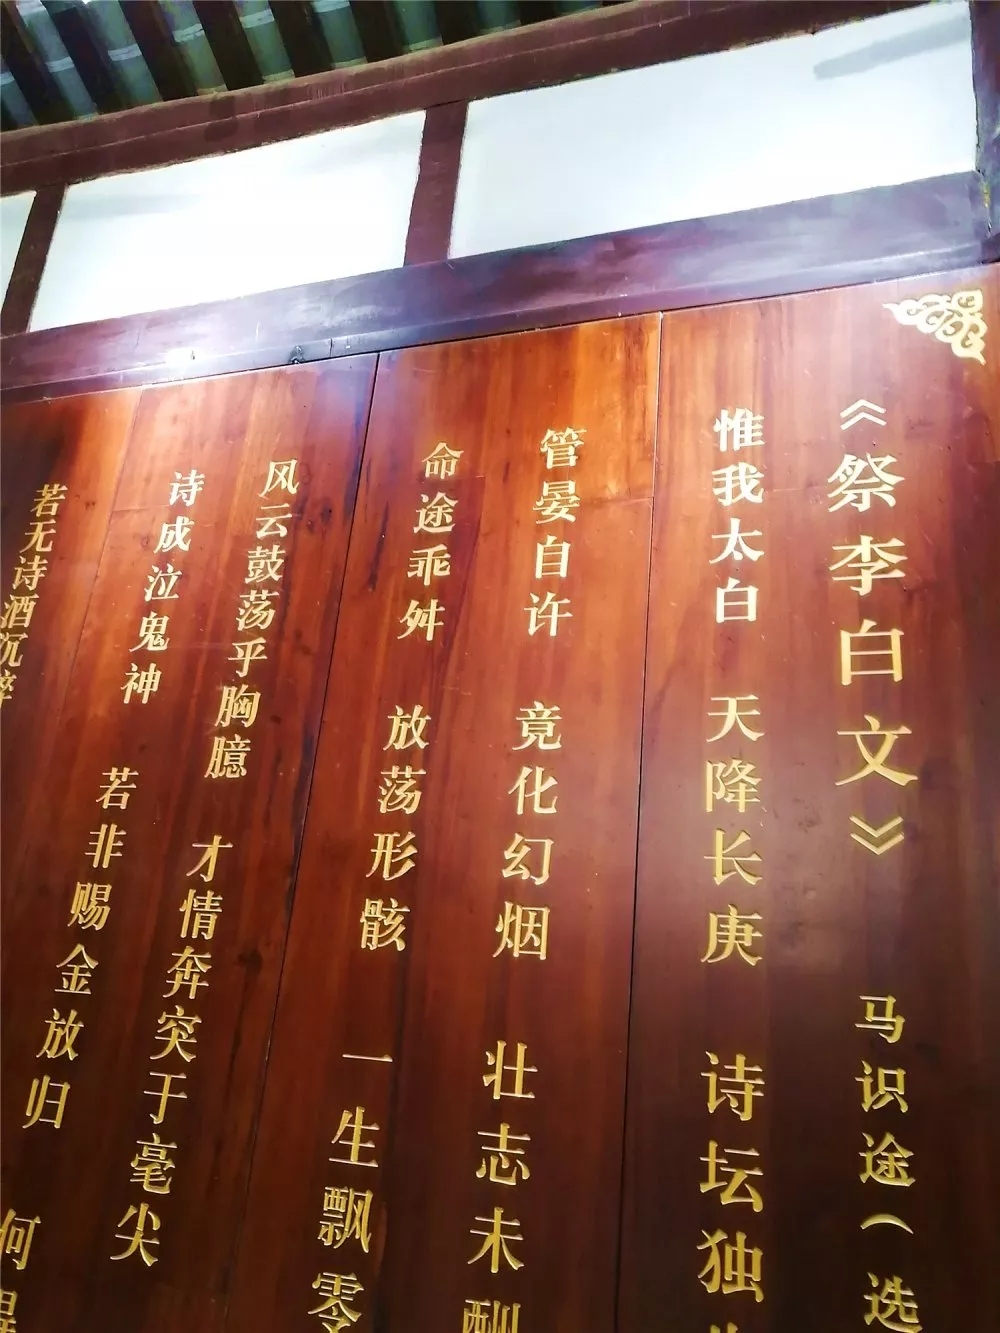 《祭李白文》 马识途（选
惟我太白 天降长庚 诗坛独
管晏自许 竟化幻烟 壮志未酬
命途乖舛 放荡形骸 一生飘零
风云鼓荡乎胸臆 才情奔突于毫尖
诗成泣鬼神 若非赐金放归 何
若无诗酒沉醉